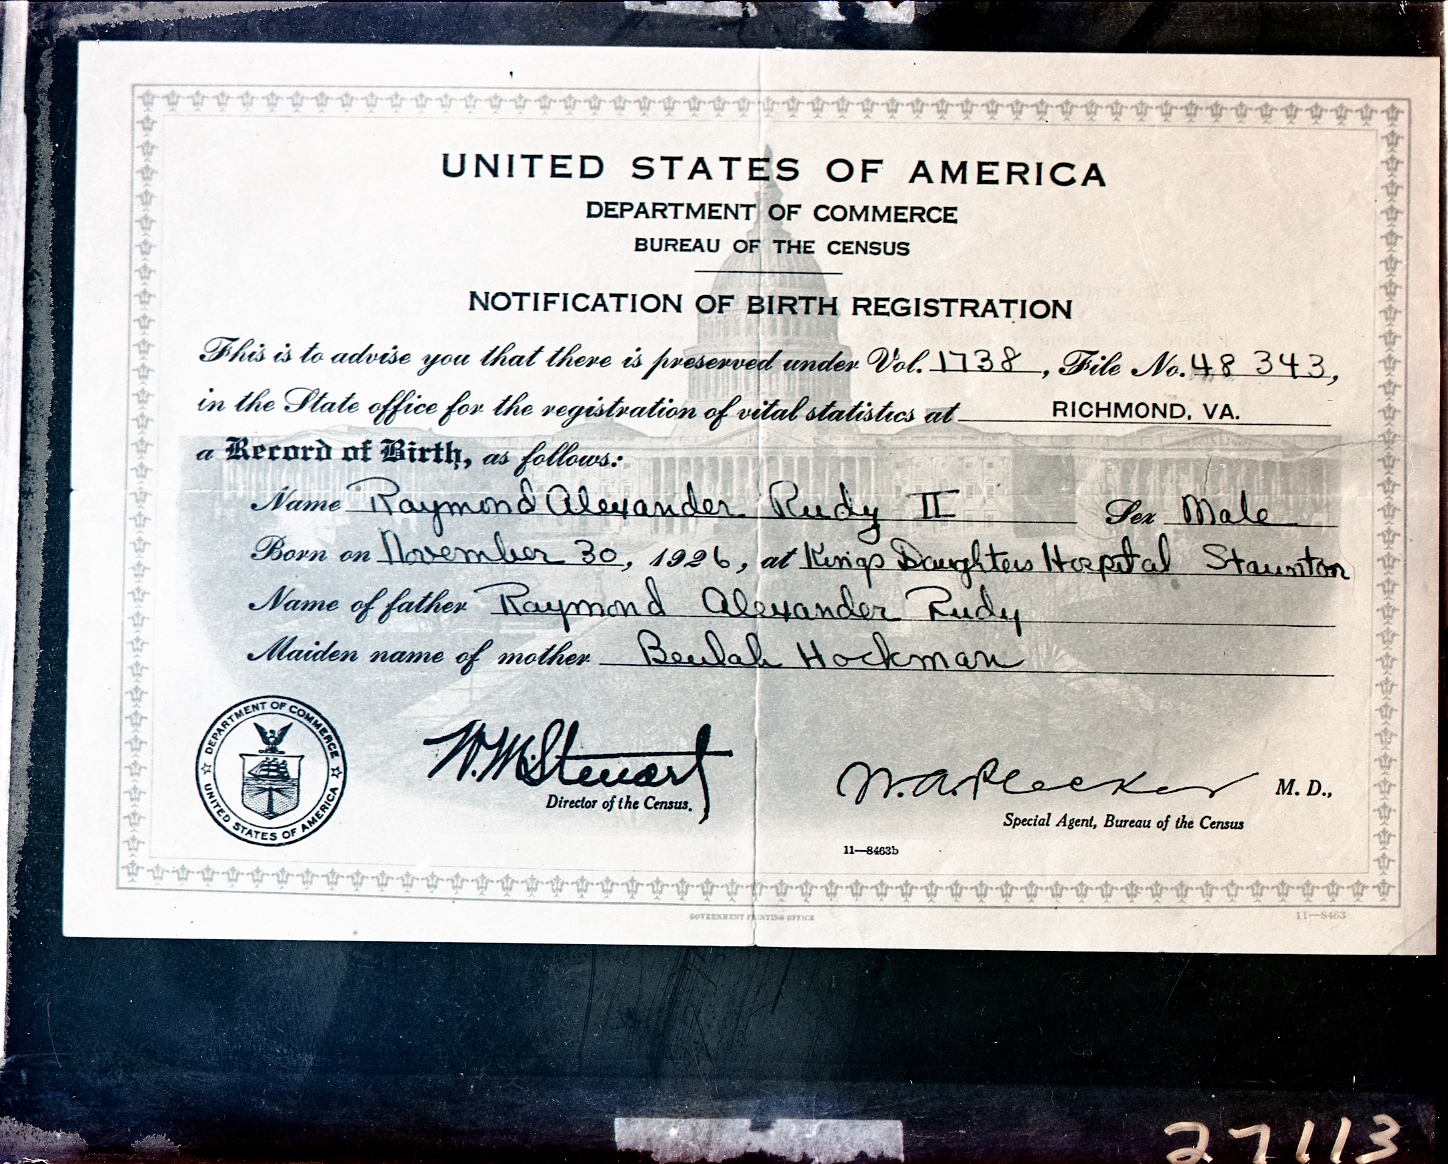 UNITED STATES OF AMERICA
DEPARTMENT OF COMMERCE
BUREAU OF THE CENSUS
NOTIFICATION OF BIRTH REGISTRATION
This is to advise you that there is preserved under Vol. 1738, File No. 48 343,
in the State office for the registration of vital statistics at RICHMOND, VA.
a Record of Birth, as follows:
Name Raymond Alexander Rudy II Sex Male
Born on November 30, 1926, at Kings Daughters Hospital Staunton
Name of father Raymond Alexander Rudy
Maiden name of mother Beulah Hockman
DEPARTMENT OF COMMERCE
UNITED STATES OF AMERICA
W. M. Steuart
Director of the Census.
W. A. Plecker M. D.,
Special Agent, Bureau of the Census
11—8463b
GOVERNMENT PRINTING OFFICE
11—8463
27113